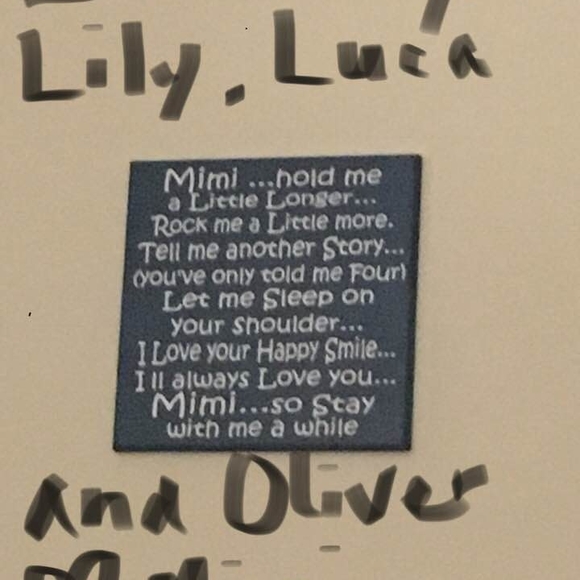 Lily, Luca
Mimi ...hold me
a Little Longer...
Rock me a Little more.
Tell me another Story...
(you've only told me Four)
Let me Sleep on
your shoulder...
I Love your Happy Smile...
I ll always Love you...
Mimi...so Stay
with me a while
And Oliver